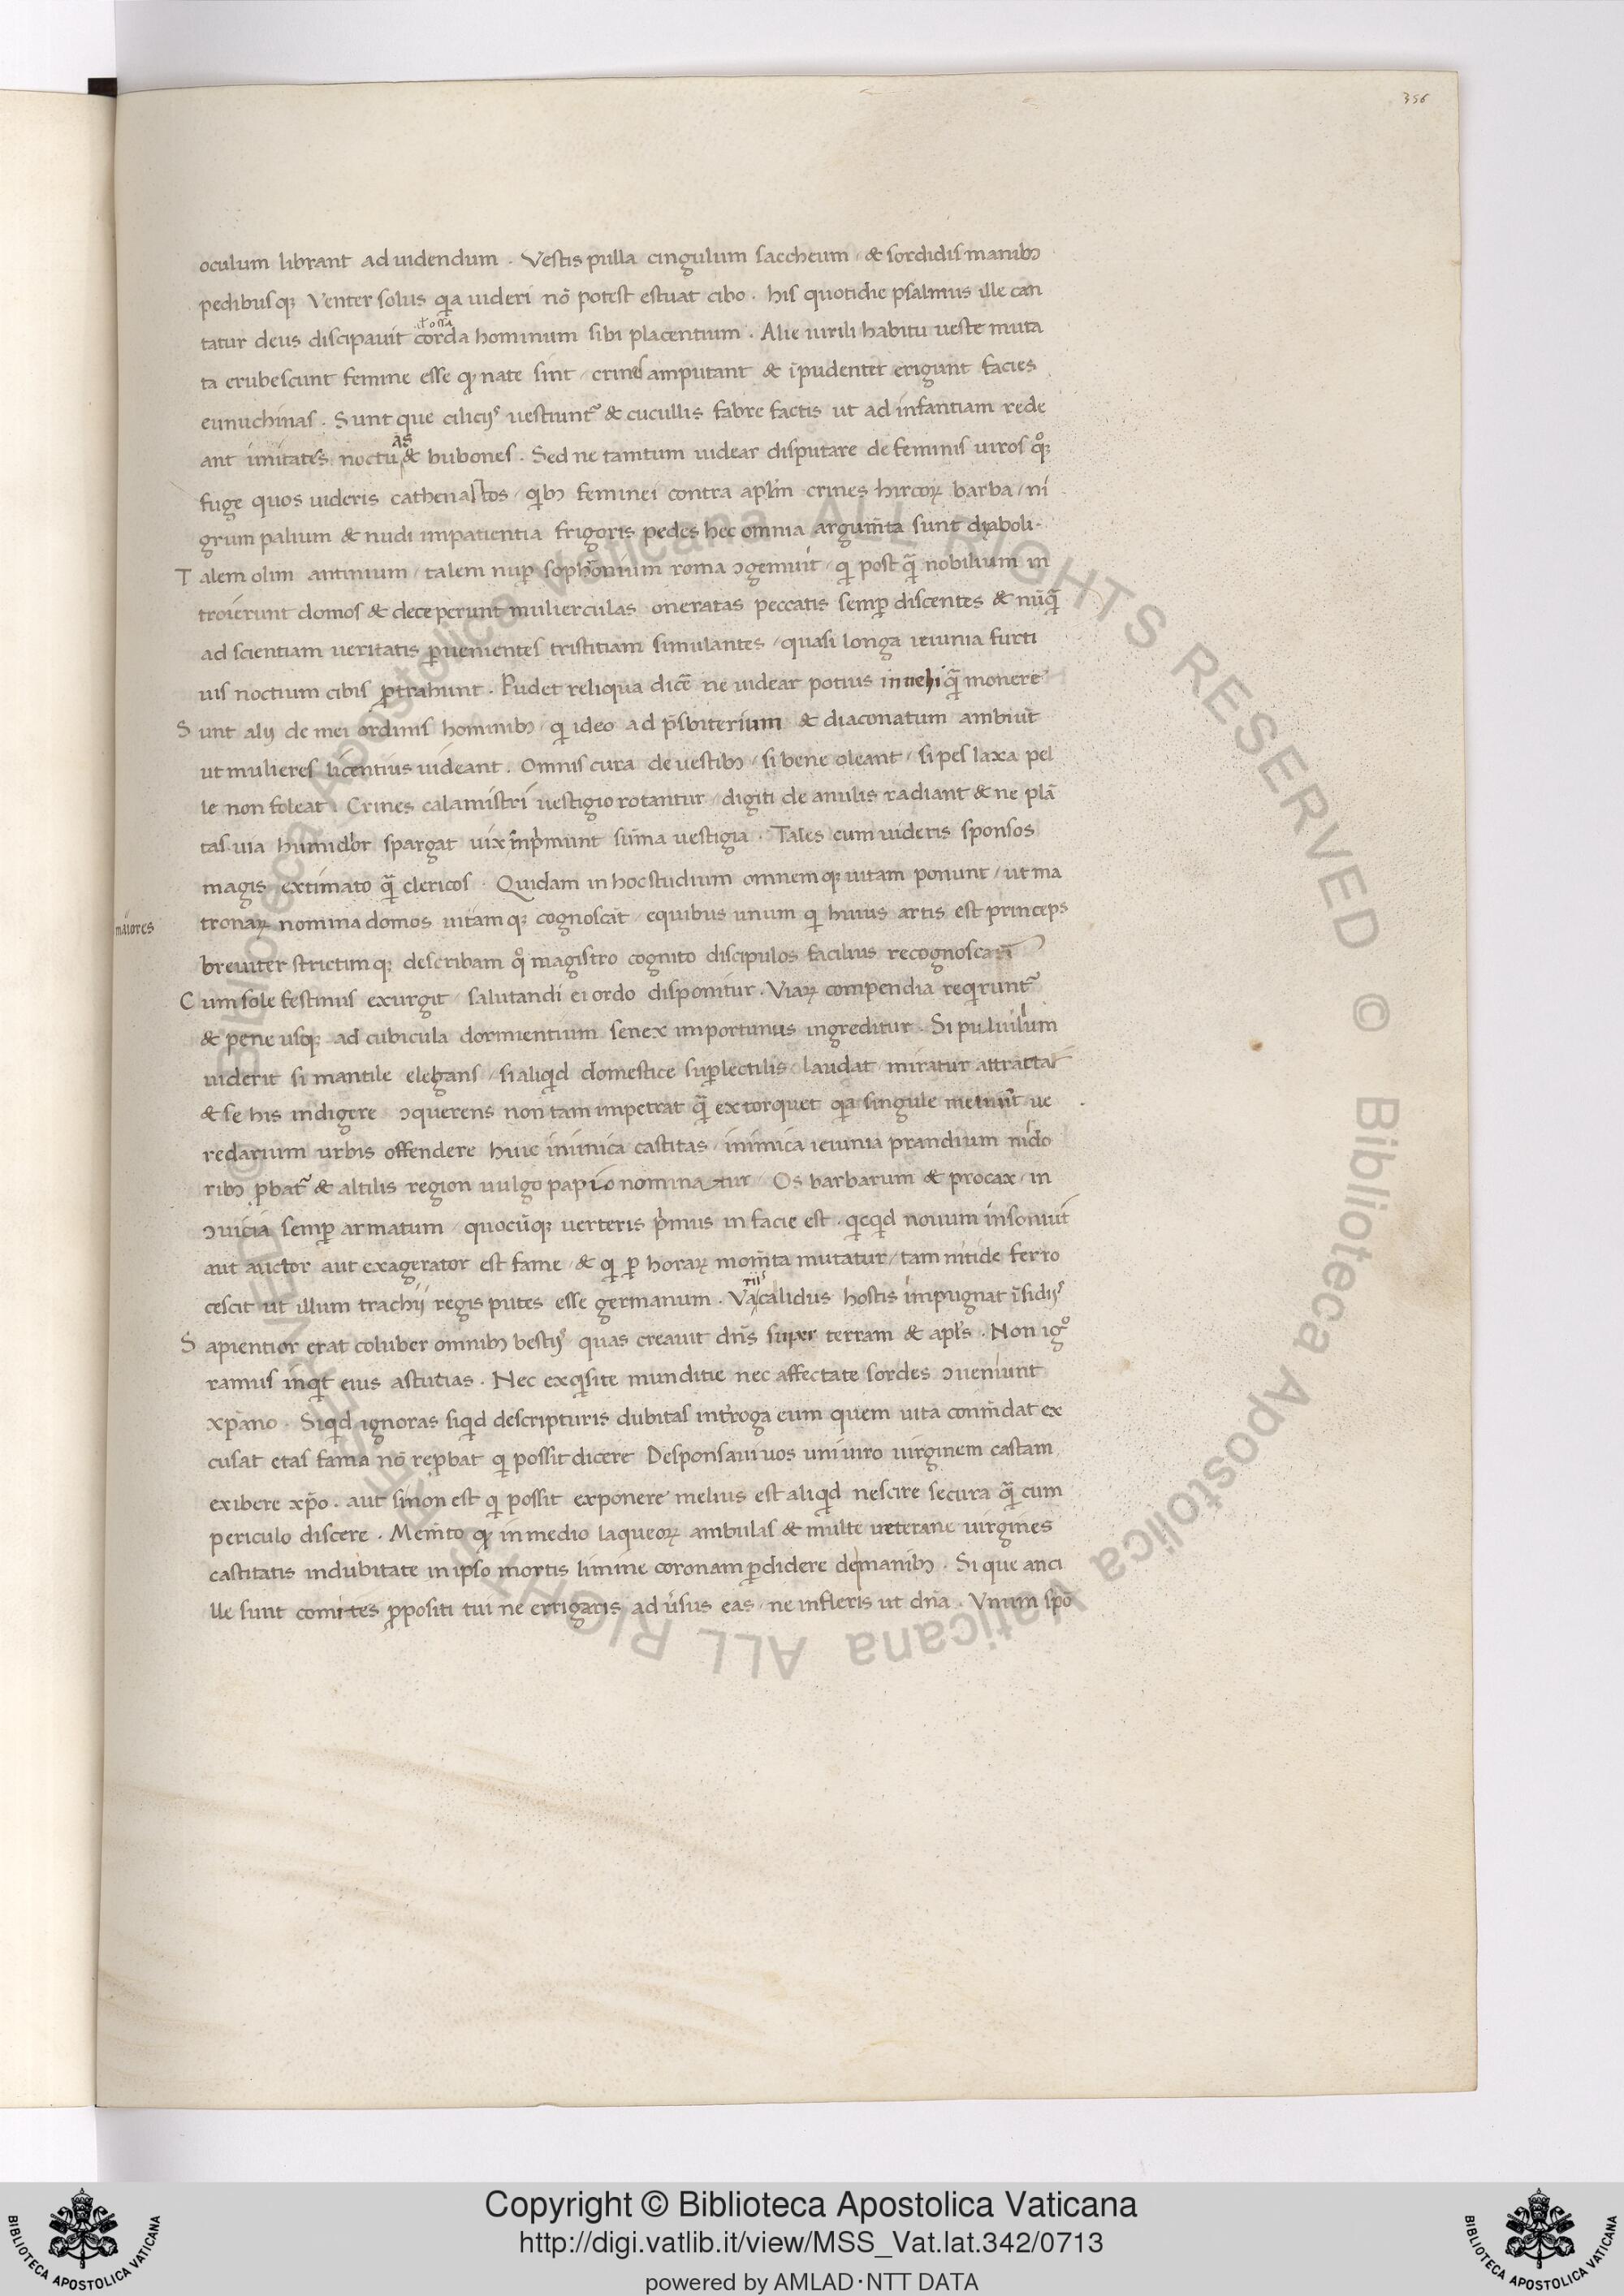 356
oculum librant ad uidendum . Vestis pulla cingulum saccheum / & sordidis manibꝫ
pedibusqꝫ Venter solus qa uideri nō potest estuat cibo . his quotidie psalmus ille can
tatur deus discipauit corda hominum sibi placentium . Alie uirili habitu ueste muta
ta erubescunt femine esse qꝫ nate sint / crines amputant & īpudenter erigunt facies
eunuchinas . Sunt que cilicijs uestiunt᷑ & cucullis fabre factis ut ad infantiam rede
ant imitates noctuas & bubones . Sed ne tamtum uidear disputare de feminis uiros qͦꝫ
fuge quos uideris cathenatos / qibꝫ feminei contra apl̄m crines hircoꝝ barba / ni
grum palium & nudi impatientia frigoris pedes hec omnia argum̄ta sunt diaboli .
Talem olim antimum / talem nuꝑ sophonium roma ɔgemuit / qi post qᷓ nobilium in
troierunt domos & deceperunt mulierculas oneratas peccatis semꝑ discentes & nūqᷓ
ad scientiam ueritatis ꝑuenientes tristitiam simulantes / quasi longa ieiunia furti
uis noctium cibis ꝓtrahunt . Pudet reliqua dicē ne uidear potius inuehi qᷓ monere
Sunt alij de mei ordinis hominibꝫ / qi ideo ad p̄sbiterium & diaconatum ambiūt
ut mulieres licentius uideant . Omnis cura de uestibꝫ / si bene oleant / si pes laxa pel
le non foleat . Crines calamistri uestigio rotantur / digiti de anulis radiant & ne plā
tas uia humidior spargat uix inp̍munt sūma uestigia . Tales cum uideris sponsos
magis extimato qᷓ clericos . Quidam in hoc studium omnemqꝫ uitam ponunt / ut ma
maiores
tronaꝝ nomina domos uitamqꝫ cognoscāt / equibus unum qi huius artis est princeps
breuiter strictimqꝫ describam qͦ magistro cognito discipulos facilius recognoscam
Cum sole festinus exurgit / salutandi ei ordo disponitur . Viaꝝ compendia reqirunt᷑
& pene usqꝫ ad cubicula dormientium senex importunus ingreditur . Si puluillum
uiderit si mantile elegans / si aliqid domestice suꝑlectilis / laudat / miratur attrattat
& se his indigere ɔquerens non tam impetrat qᷓ extorquet qa singule metuūt ue
redarium urbis offendere huic inimica castitas / inimica ieiunia prandium nido
ribꝫ ꝓbat᷑ & altilis region uulgo papio nominatur / Os barbarum & procax / in
ɔuicia semꝑ armatum / quocūqꝫ uerteris p̍mus in facie est . qicqid nouum insonuit
aut auctor aut exagerator est fame / & qi ꝑ horaꝝ mom̄ta mutatur / tam nitide ferro
cescit ut illum trachij regis putes esse germanum . Variis calidus hostis impugnat īsidijs
Sapientior erat coluber omnibꝫ bestijs quas creauit dn̄s super terram & apl̄s . Non igͦ
ramus inqit eius astutias . Nec exqisite munditie nec affectate sordes ɔueniunt
xp̄iano . Siqid ignoras siqid descripturis dubitas int̄roga eum quem uita conm̄dat ex
cusat etas fama nō reꝓbat qi possit dicere Desponsaui uos uni uiro uirginem castam
exibere xp̄o . aut si non est qi possit exponere melius est aliqid nescire secura qᷓ cum
periculo discere . Mem̄to qꝫ in medio laqueoꝝ ambulas & multe ueterane uirgines
castitatis indubitate in ipso mortis limine coronam ꝑdidere de manibꝫ . Si que anci
lle sunt comites ꝓpositi tui ne errigaris aduersus eas / ne infleris ut dn̄a . Vnum spō
Copyright © Biblioteca Apostolica Vaticana
http://digi.vatlib.it/view/MSS_Vat.lat.342/0713
powered by AMLAD·NTT DATA